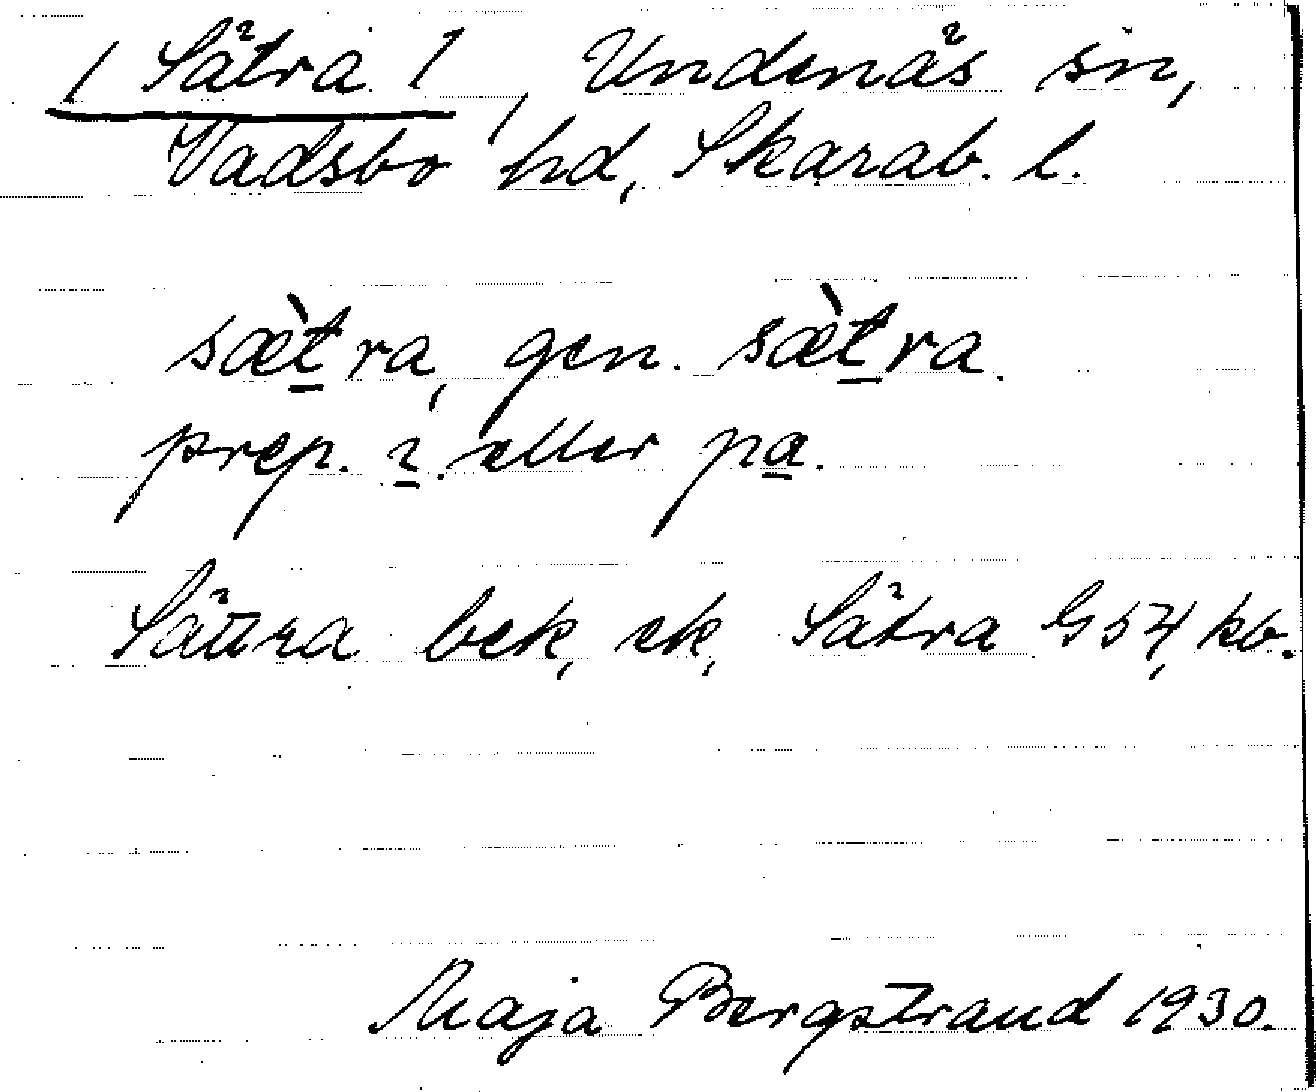 / Sätra 1, Undenäs sn,
Vadsbo hd, Skarab. l.
sæ̀tra, gen. sæ̀tra.
prep. i. eller pa.
Sättra bek, ek, Sätra G 54, kb.
Maja Bergstrand 1930.